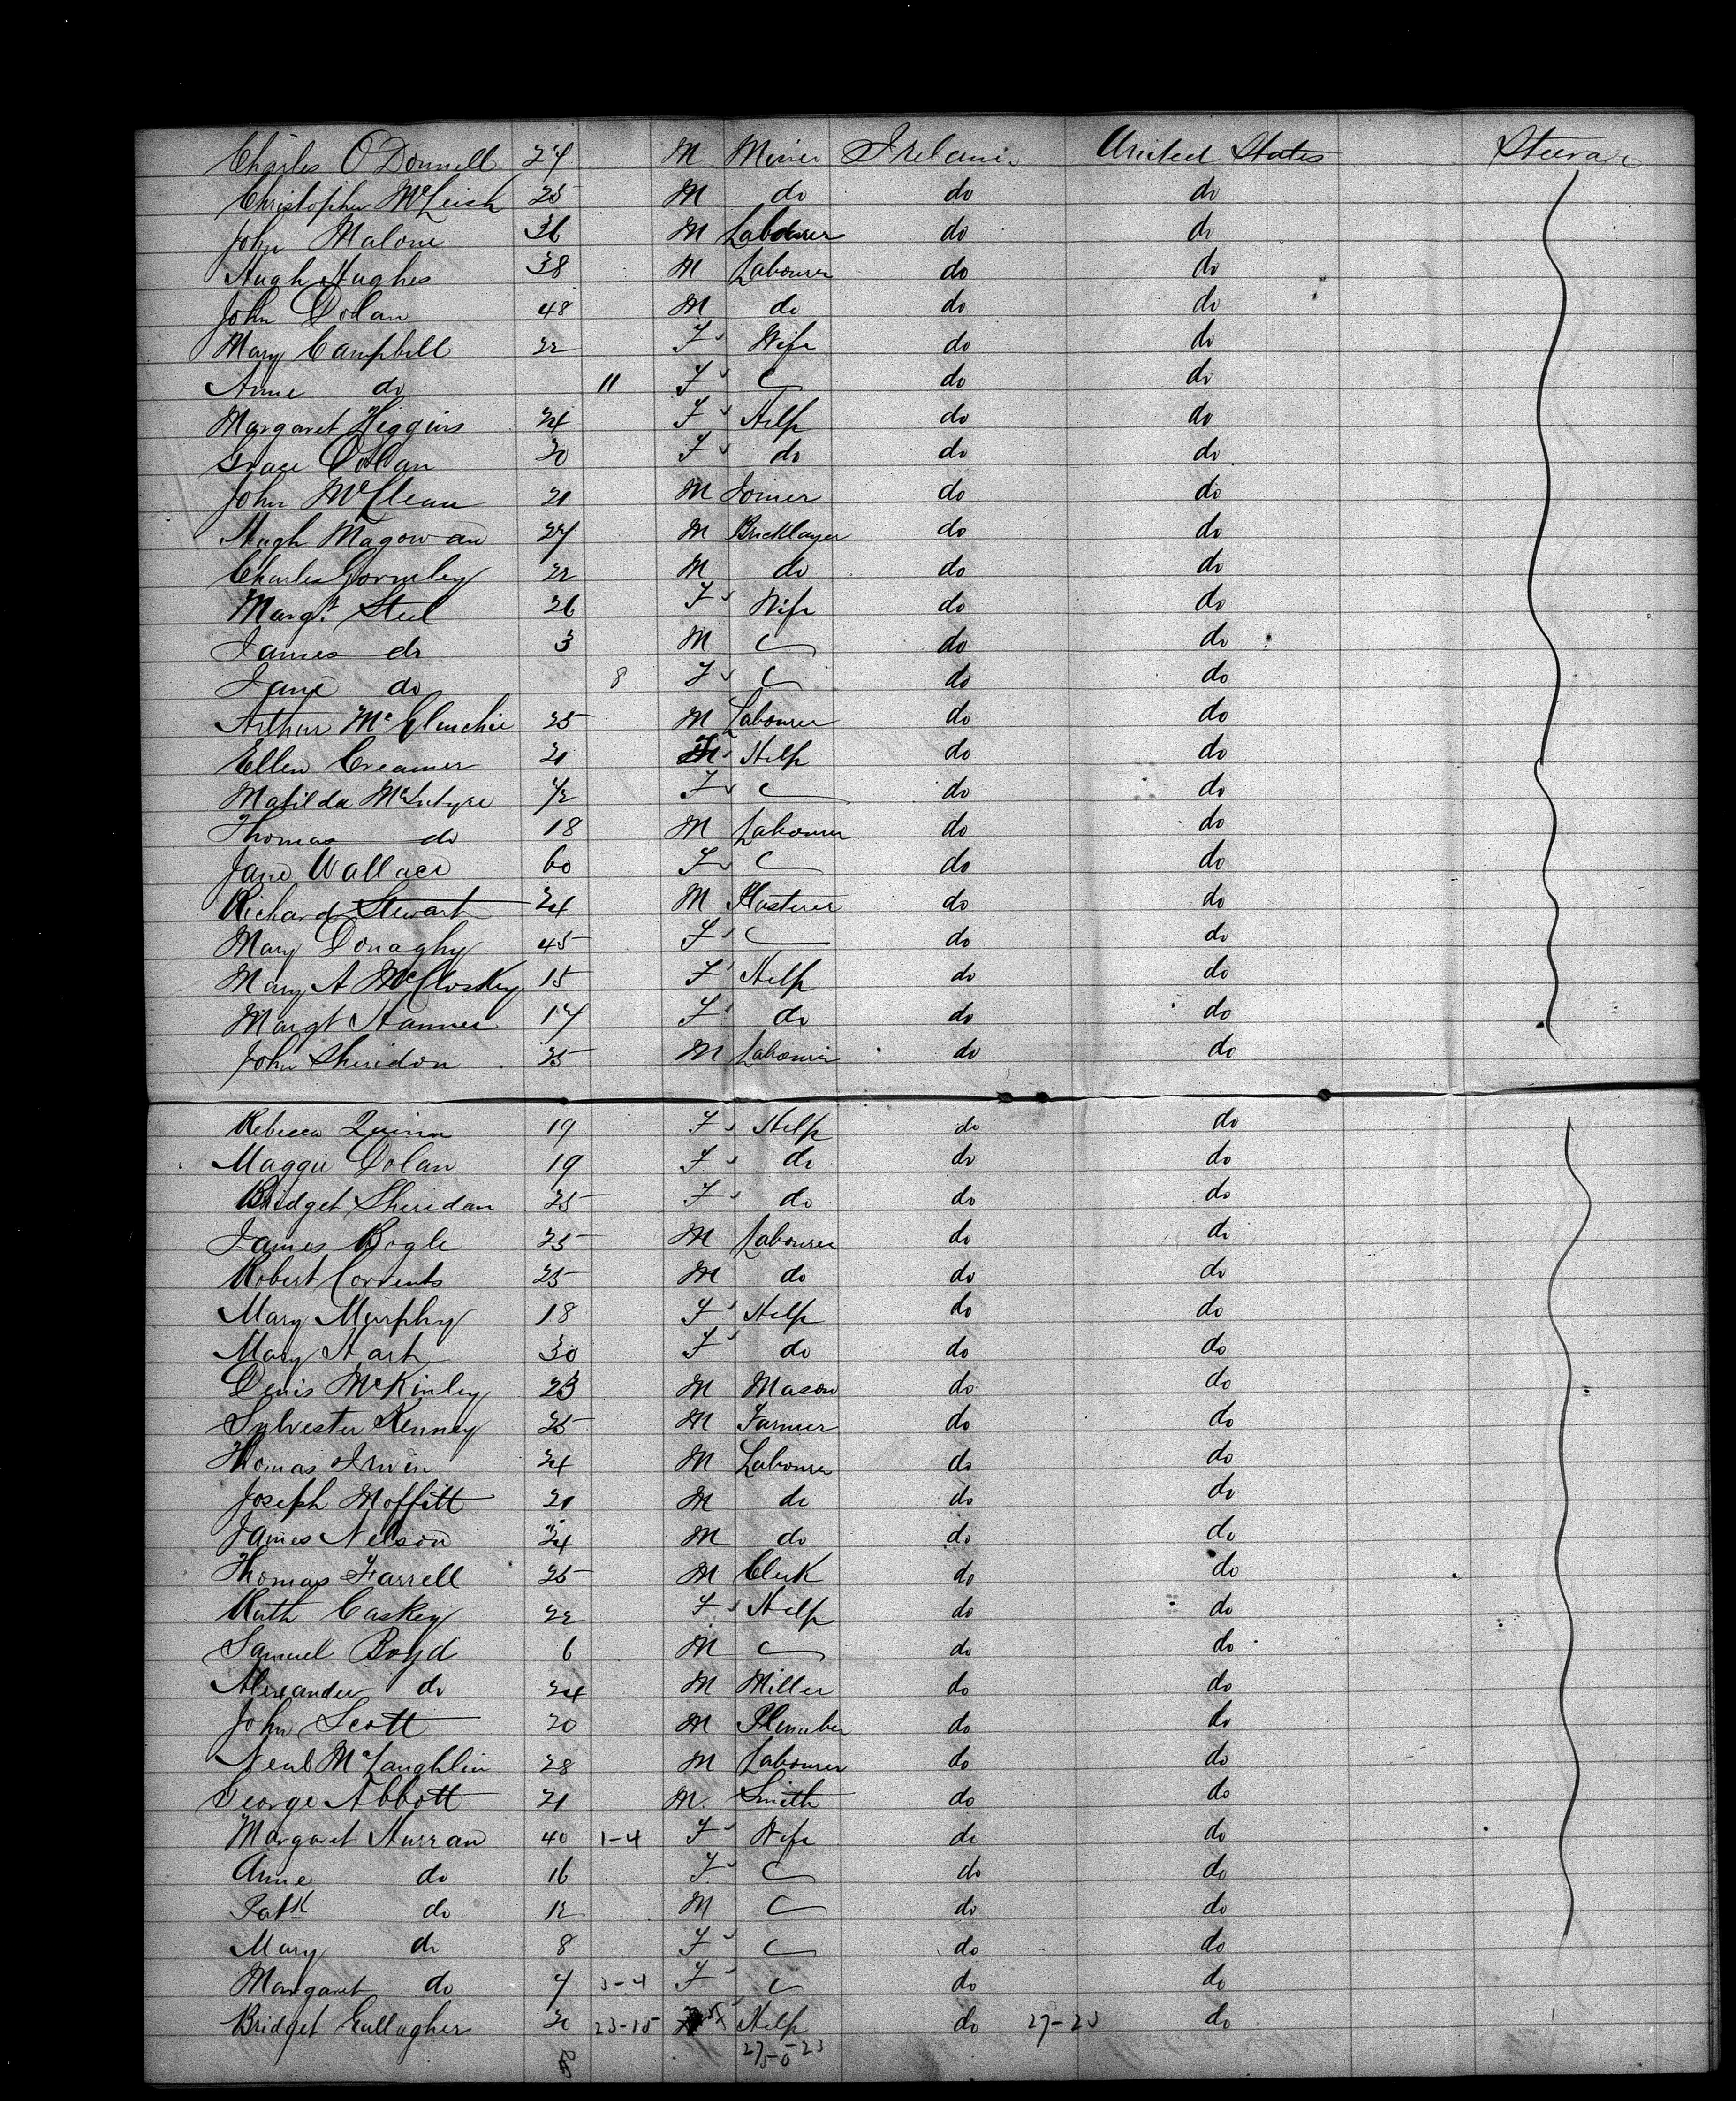 Charles O'Donnell 24 M Miner Ireland United States Steerage
Christopher McLeish 25 M do do do
John Malone 36 M Labourer do do
Hugh Hughes 38 M Labourer do do
John Dolan 48 M do do do
Mary Campbell 22 F Wife do do
Anne do 11 F C do do
Margaret Higgins 24 F Help do do
Grace Dolan 20 F do do do
John McClean 21 M Joiner do do
Hugh Magowan 27 M Bricklayer do do
Charles Gormley 22 M do do do
Margt. Steel 26 F Wife do do
James do 3 M C do do
Jane do 8 F C do do
Arthur 25 M Labourer do do
Ellen Creamer 21 F Help do do
Matilda McIntyre F C do do
Thomas do 18 M Labourer do do
Jane Wallace 60 F C do do
Richard Stewart 24 M Plasterer do do
Mary Donaghy 45 F C do do
Mary A McCloskey 15 F Help do do
Margt 17 F do do do
John Sheridon 25 M Labourer do do
Rebecca Quinn 19 F Help do do
Maggie Dolan 19 F do do do
Bridget Sheridan 25 F do do do
James Bogle 25 M Labourer do do
Robert Corrents 25 M do do do
Mary Murphy 18 F Help do do
Mary 30 F do do do
Denis McKinley 23 M Mason do do
Sylvester Kenney 25 M Farmer do do
Thomas Irwin 24 M Labourer do do
Joseph Moffitt 21 M do do do
James Nelson 24 M do do do
Thomas Farrell 25 M Clerk do do
Ruth Caskey 22 F Help do do
Samuel Boyd 6 M C do do
Alexander do 24 M Miller do do
John Scott 20 M Plumber do do
Neal McLaughlin 28 M Labourer do do
George Abbott 21 M. Smith do do
Margaret Hurran 40 1-4 F Wife do do
Anne do 16 F C do do
Patk do 12 M C do do
Mary do 8 F C do do
Margaret do 7 3-4 F C do do
Bridget Gallagher 20 23-15 Help do 27-23 do